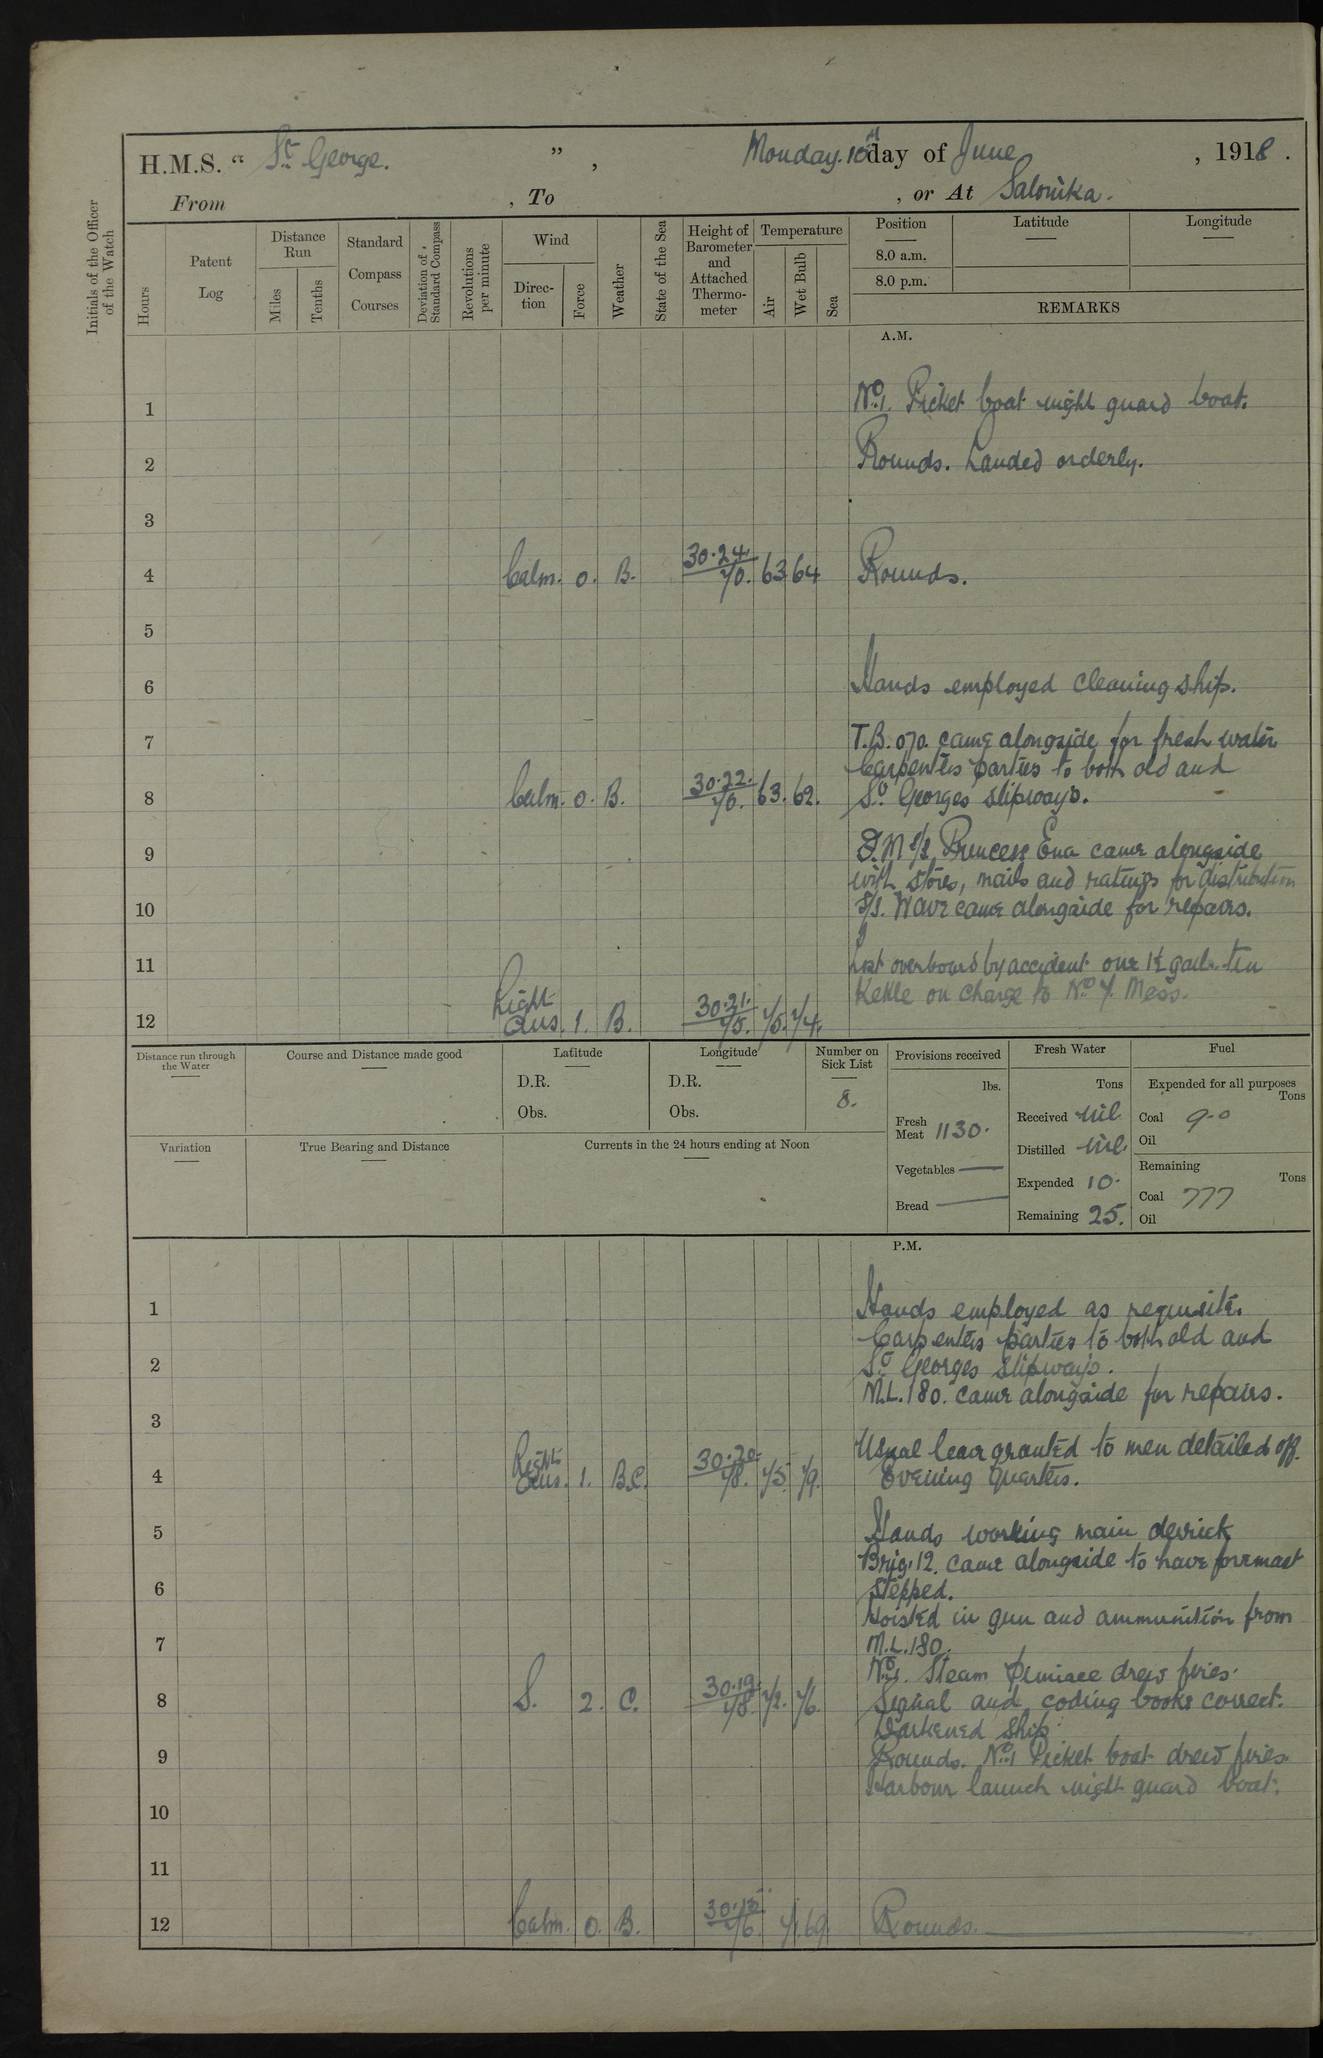 H.M.S. “ St. George. ” , Monday. 10th day of June , 1918 .
From , To , or At Salonika.
Initials of the Officer of the Watch
Hours
Patent Log
Distance Run
Miles
Tenths
Standard Compass Courses
Deviation of Standard Compass
Revolutions per minute
Wind
Direction
Force
Weather
State of the Sea
Height of Barometer and Attached Thermometer
Temperature
Air
Wet Bulb
Sea
Position
8.0 a.m.
8.0 p.m.
Latitude
Longitude
REMARKS
A.M.
1 No. 1. Picket boat night guard boat.
2 Rounds. Landed orderly.
3
4 Calm. 0. B. 30.24. 70. 63 64 Rounds.
5
6 Hands employed cleaning ship.
7 T.B. 070. came alongside for fresh water
Carpenters parties to both old and
8 Calm. 0. B. 30.22. 70. 63. 62. St. Georges slipways.
9 F.M S/S. Princess Ena came alongside
with stores, mails and ratings for distribution
10 S/S. Wave came alongside for repairs.
11 Lost overboard by accident one 1½ gall. tin
Kettle on charge to No. 7. Mess.
12 Light Aus. 1. B. 30.21. 75. 75. 74.
Distance run through the Water
Course and Distance made good
Latitude
D.R.
Obs.
Longitude
D.R.
Obs.
Number on Sick List
8.
Provisions received
lbs.
Fresh Meat 1130.
Vegetables —
Bread —
Fresh Water
Tons
Received Nil
Distilled Nil.
Expended 10.
Remaining 25.
Fuel
Expended for all purposes
Tons
Coal 9.0
Oil
Remaining
Tons
Coal 777
Oil
Variation
True Bearing and Distance
Currents in the 24 hours ending at Noon
P.M.
1 Hands employed as requisite.
Carpenters parties to both old and
2 St. Georges slipways.
M.L. 180. came alongside for repairs.
3
Usual leave granted to men detailed off.
4 Light Aus. 1. B.C. 30.20. 78. 75. 79. Evening Quarters.
5 Hands working main derrick
Brig. 12. came alongside to have foremast
6 stepped.
Hoisted in gun and ammunition from
7 M.L. 180.
No. 1. Steam Pinnace drew fires.
8 S. 2. C. 30.19. 78. 72. 76. Signal and coding books correct.
Darkened ship.
9 Rounds. No. 1 Picket boat drew fires.
Harbour launch night guard boat.
10
11
12 Calm. 0. B. 76. 71. 69. Rounds.